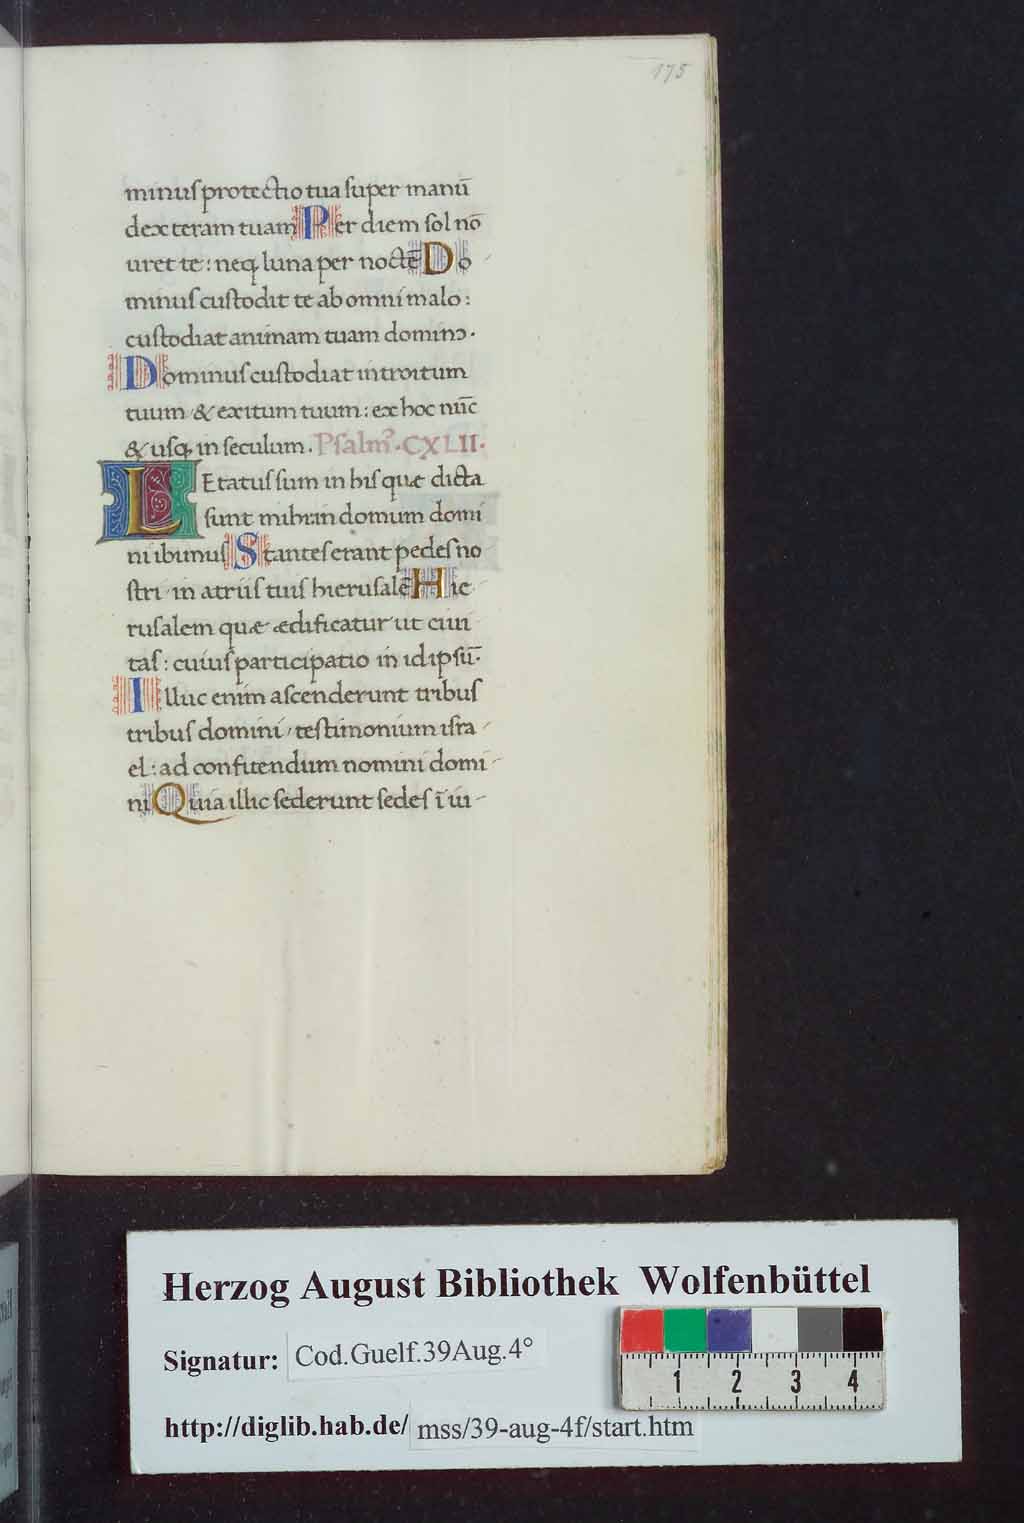 175
minus protectio tua super manū
dexteram tuam Per diem sol nō
uret te: neq; luna per noctē Do
minus custodit te ab omni malo:
custodiat animam tuam dominꝰ.
Dominus custodiat introitum
tuum & exitum tuum: ex hoc nūc
& usq; in seculum. Psalmꝰ. CXLII.
LEtatus sum in his quæ dicta
sunt mihi: in domum domi
ni ibimus Stantes erant pedes no
stri in atriis tuis hierusalē Hie
rusalem quæ ædificatur ut ciui
tas: cuius participatio in idipsū.
Illuc enim ascenderunt tribus
tribus domini, testimonium isra
el: ad confitendum nomini domi
ni Quia illic sederunt sedes ī iu
Herzog August Bibliothek Wolfenbüttel
Signatur: Cod.Guelf.39Aug.4°
1 2 3 4
http://diglib.hab.de/ mss/39-aug-4f/start.htm